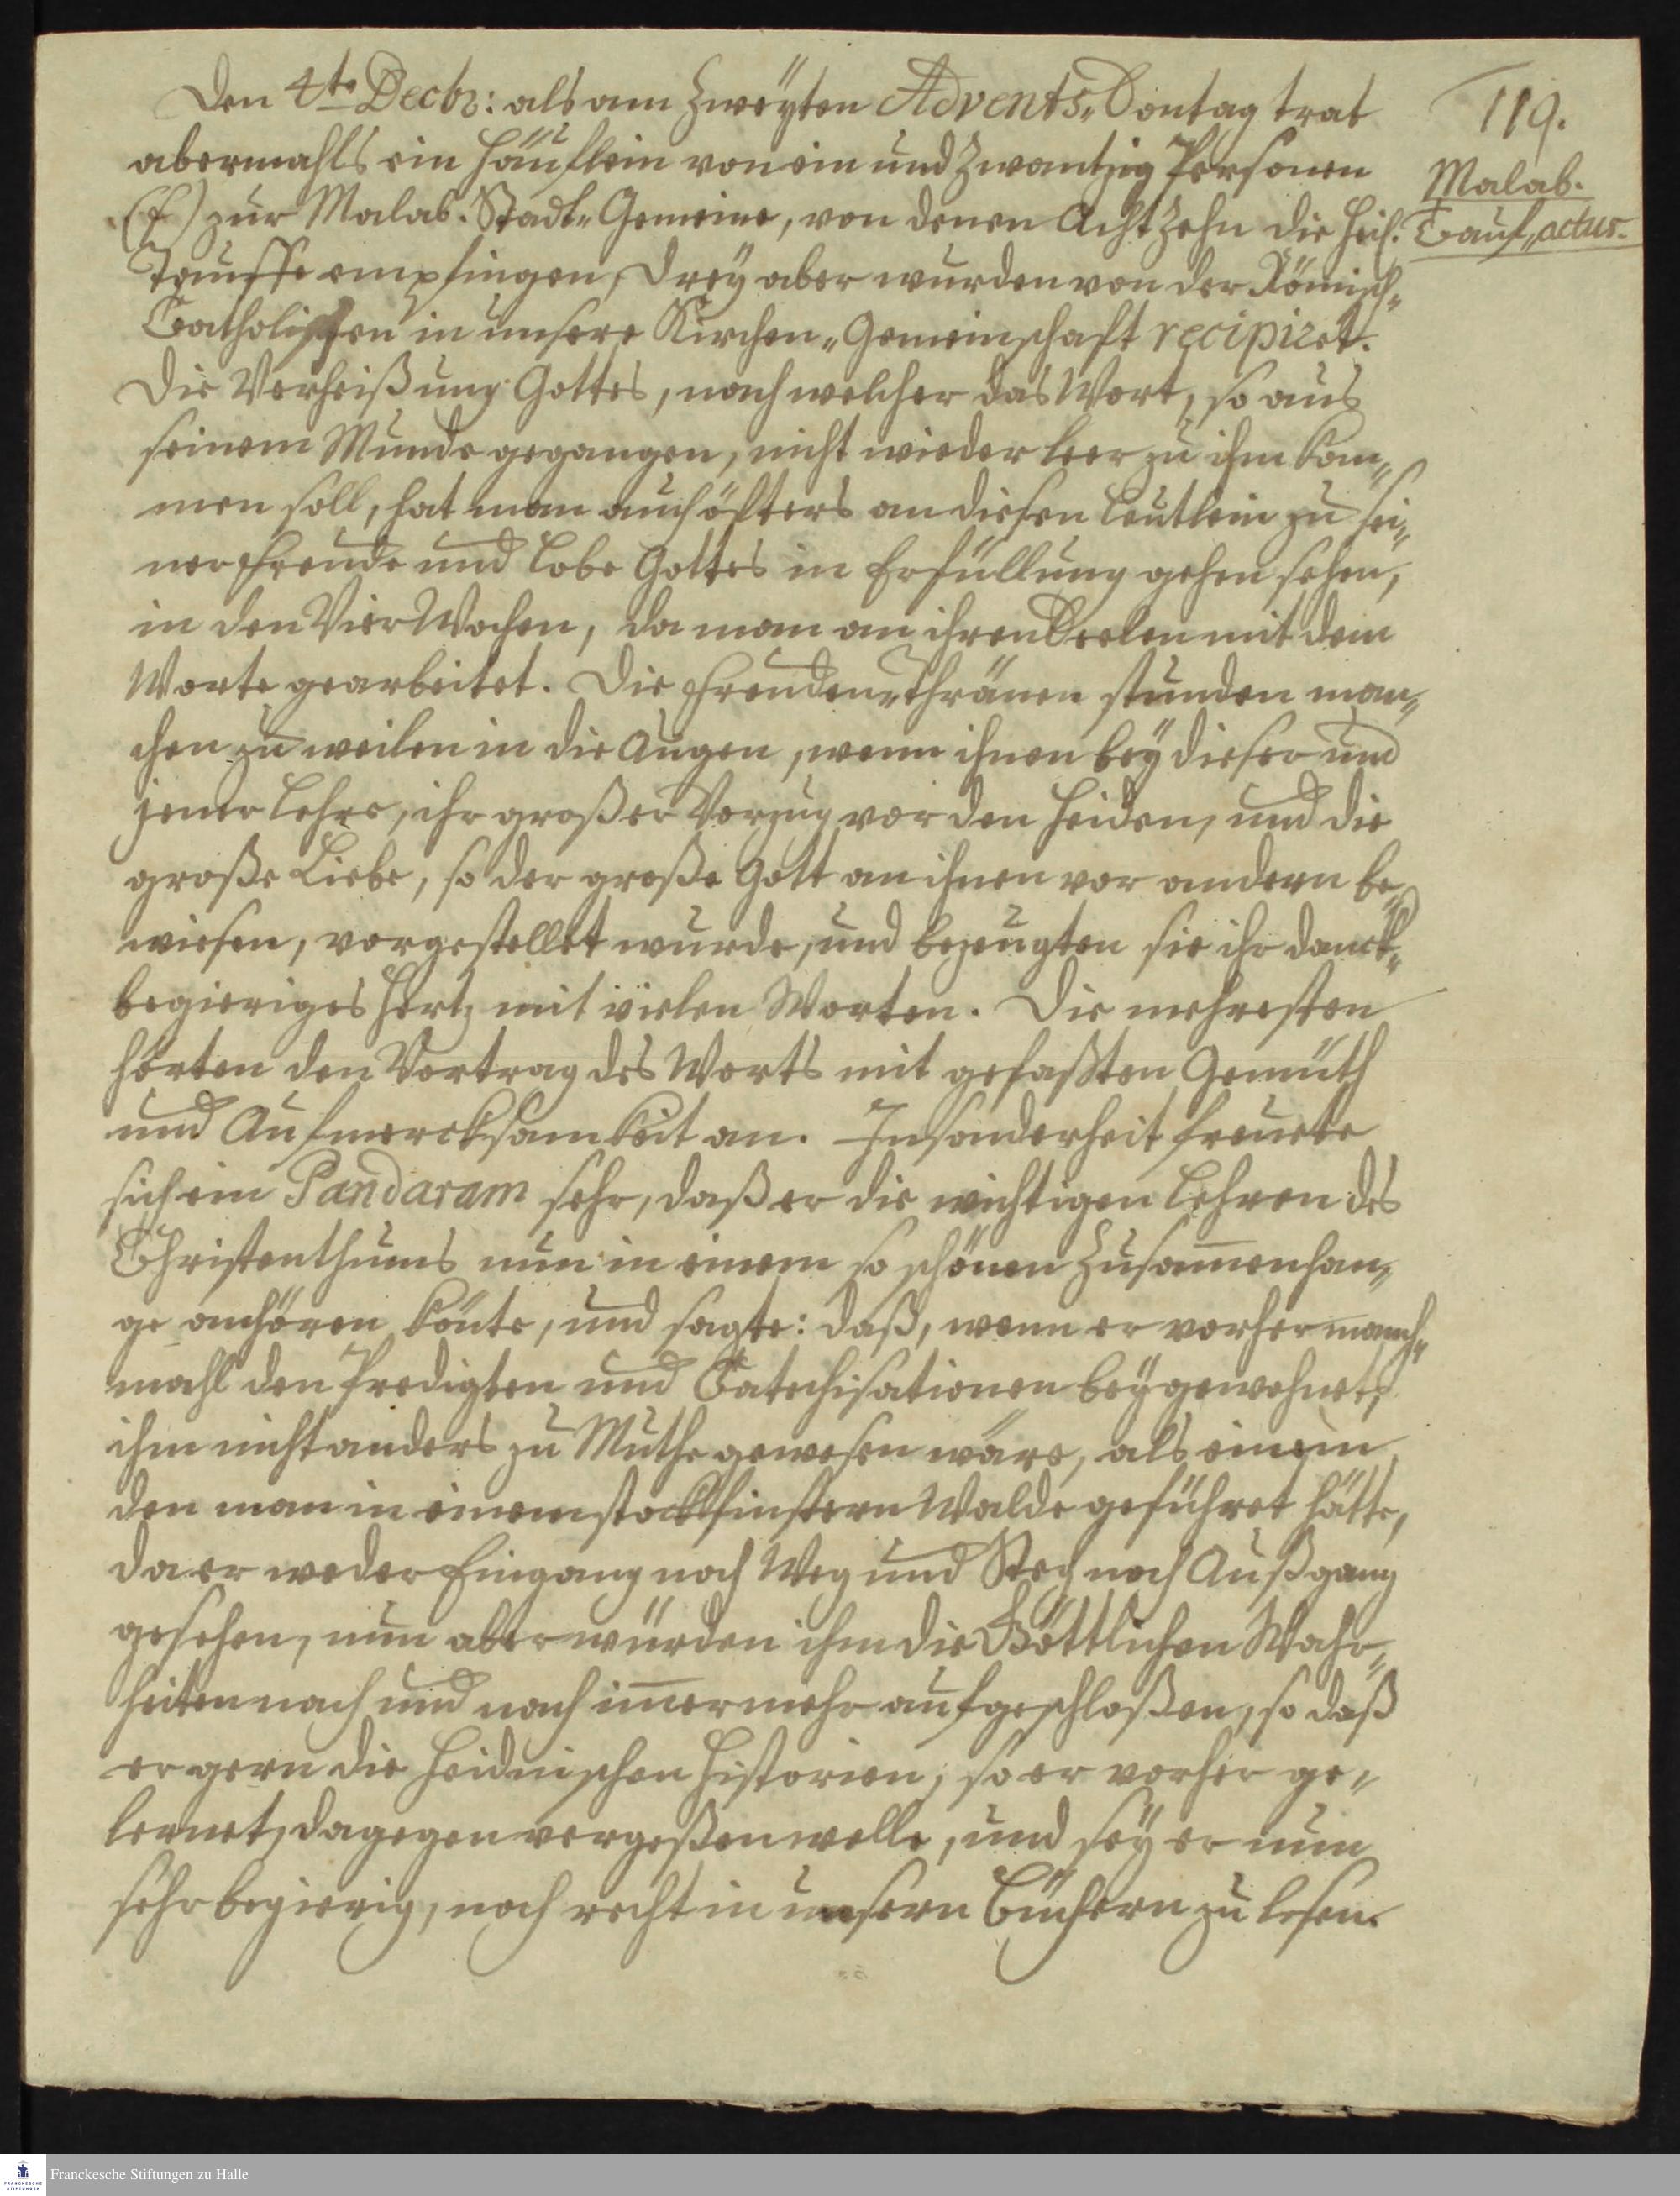 Den 4te Decbr: als am Zweyten Advents-Sontag trat
119.
abermahls ein Häuflein von ein und Zwantzig Personen
Malab.
(f) zur Malab. Stadt-Gemeine, von denen Achtzehn die Heil.
Tauf-actus.
Tauffe empfingen, drey aber wurden von der Römisch-
Catholischen in unsere Kirchen-Gemeinschaft recipiret.
Die Verheißung Gottes, nach welcher das Wort, so aus
seinem Munde gegangen, nicht wieder leer zu ihm kom-
men soll, hat man auch öfters an diesen Leutlein zu sei-
ner Freude und Lobe Gottes in Erfüllung gehen sehen,
in den Vier Wochen, da man an ihren Seelen mit dem
Worte gearbeitet. Die Freuden-Thränen stunden man-
chen zu weilen in die Augen, wenn ihnen bey dieser und
jener Lehre, ihr großer Vorzug vor den Heiden, und die
große Liebe, so der große Gott an ihnen vor andern be-
wiesen, vorgestellet wurde, und bezeugten sie ihr danck-
begieriges Hertz mit vielen Worten. Die mehresten
hörten den Vortrag des Worts mit gefaßten Gemüth
und Aufmercksamkeit an. Insonderheit freuete
sich ein Pandaram sehr, daß er die wichtigen Lehren des
Christenthums nun in einem so schönen Zusam̅enhan-
ge anhören kön̅te, und sagte: daß, wenn er vorher manch-
mahl den Predigten und Catechisationen beygewohnet,
ihm nicht anders zu Muthe gewesen wäre, als einem
den man in einem stockfinstern Walde geführet hätte,
da er weder Eingang noch Weg und Steg noch Außgang
gesehen, nun aber würden ihm die Göttlichen Wahr-
heiten nach und nach im̅er mehr aufgeschloßen, so daß
er gern die Heidnischen Historien, so er vorher ge-
lernet, dagegen vergeßen wolle, und sey er nun
sehr begierig, noch recht in unsern Büchern zu lesen.
Franckesche Stiftungen zu Halle